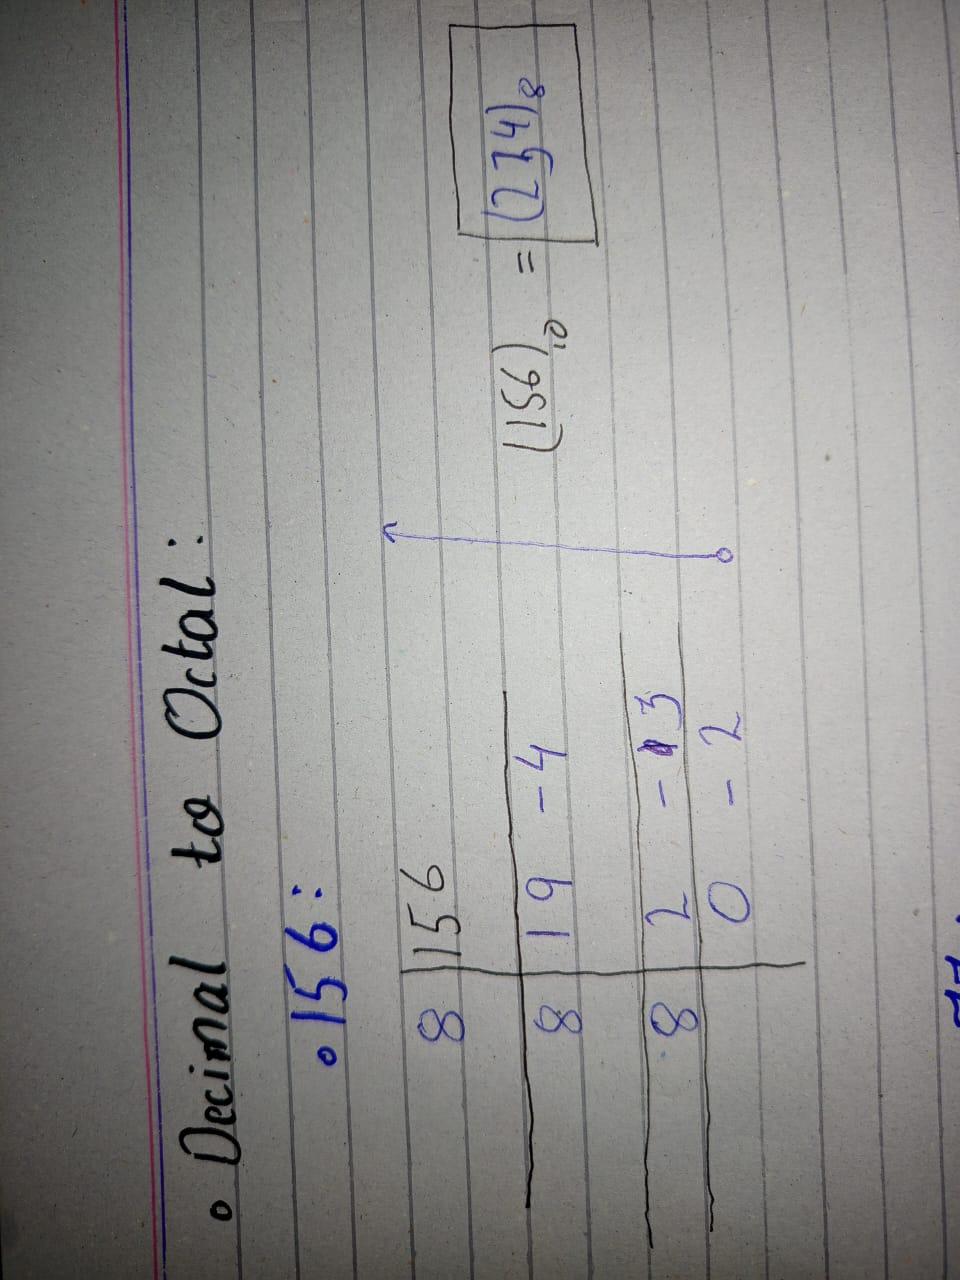 • Decimal to Octal:
• 156:
8 | 156
8 | 19 - 4
8 | 2 - 3
0 - 2
(156)10 = (234)8